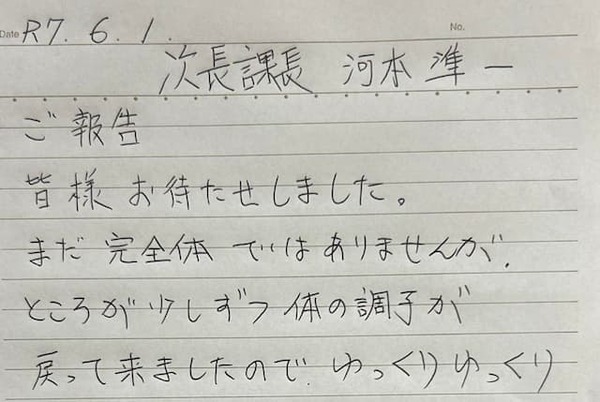 Date R7. 6. 1. No.
次長課長 河本 準一
ご報告
皆様 お待たせしました。
まだ 完全体 ではありませんが、
ところが 少しずつ 体の調子が
戻って来ましたので、ゆっくりゆっくり